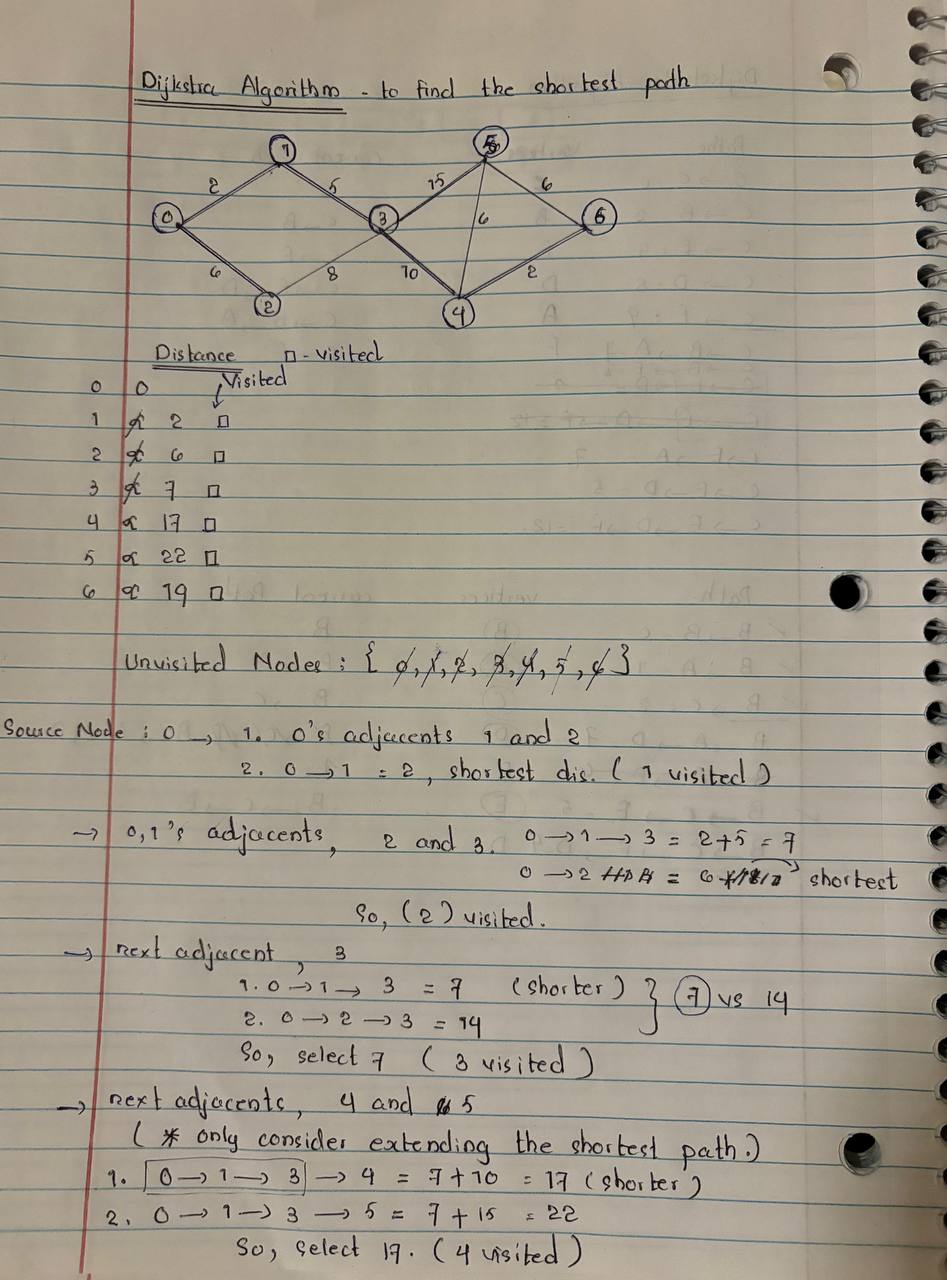 Dijkstra Algorithm - to find the shortest path
1 5
2 5 15 6
0 3 6 6
6 8 10 2
2 4
Distance □ - visited
0 0 Visited
1 ∝ 2 □
2 ∝ 6 □
3 ∝ 7 □
4 ∝ 17 □
5 ∝ 22 □
6 ∝ 19 □
Unvisited Nodes : { 0, 1, 2, 3, 4, 5, 6 }
Source Node : 0 → 1. 0's adjacents 1 and 2
2. 0 → 1 = 2, shortest dis. ( 1 visited )
→ 0,1's adjacents, 2 and 3. 0 → 1 → 3 = 2+5 = 7
0 → 2 = 6 shortest
So, (2) visited.
→ next adjacent, 3
1. 0 → 1 → 3 = 7 (shorter) } 7 vs 14
2. 0 → 2 → 3 = 14
So, select 7 ( 3 visited )
→ next adjacents, 4 and 5
( * only consider extending the shortest path.)
1. 0 → 1 → 3 → 4 = 7+10 = 17 (shorter)
2. 0 → 1 → 3 → 5 = 7 + 15 = 22
So, select 17. ( 4 visited )